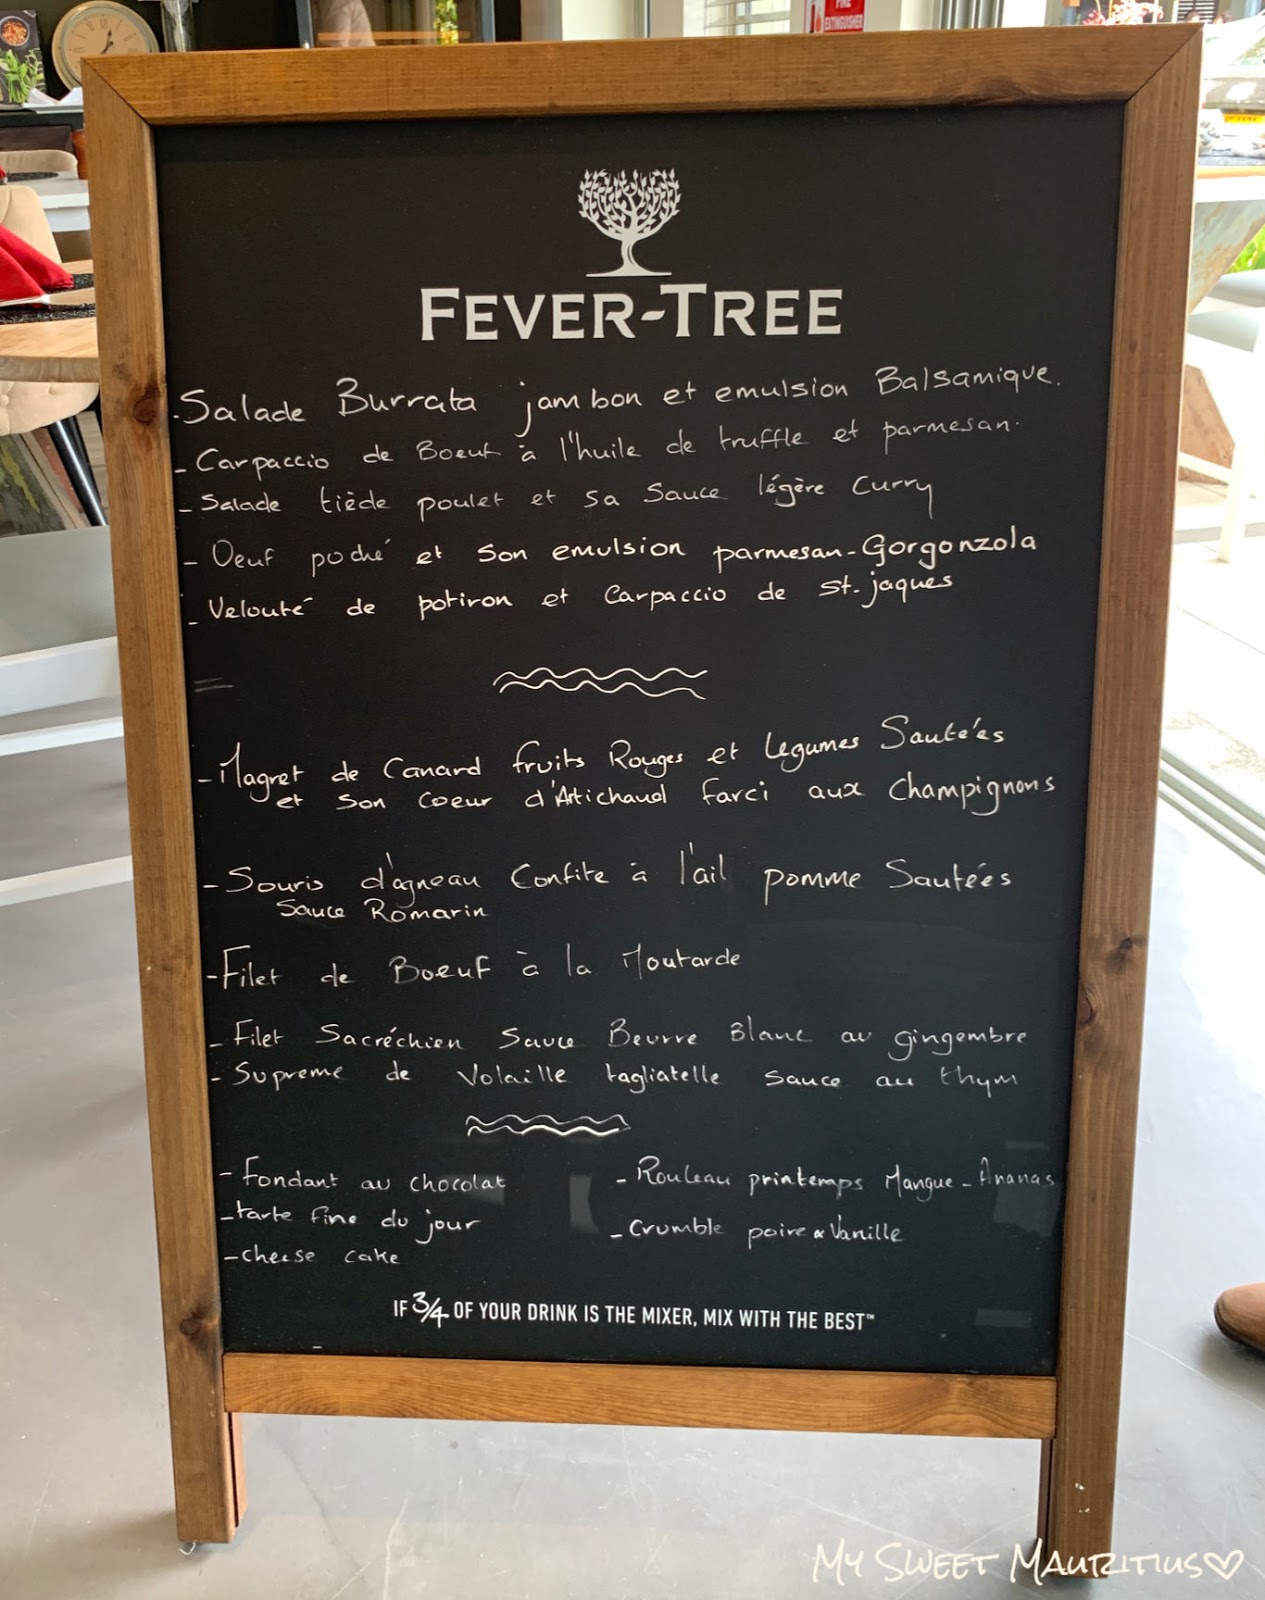 FIRE
EXTINGUISHER
FEVER-TREE
.Salade Burrata jambon et emulsion Balsamique.
- Carpaccio de Boeuf à l'huile de truffle et parmesan.
- Salade tiède poulet et sa sauce légère Curry
- Oeuf poché et son emulsion parmesan-Gorgonzola
- Velouté de potiron et Carpaccio de St.jaques
- Magret de Canard fruits Rouges et légumes Sautées
et son coeur d'Artichaud farci aux champignons
- Souris d'agneau Confite à l'ail pomme Sautées
Sauce Romarin
- Filet de Boeuf à la Moutarde
- Filet Sacréchien Sauce Beurre Blanc au gingembre
- Supreme de Volaille tagliatelle sauce au thym
- Fondant au chocolat
- tarte fine du jour
- cheese cake
- Rouleau printemps Mangue - Ananas
- Crumble poire & Vanille
IF 3/4 OF YOUR DRINK IS THE MIXER, MIX WITH THE BEST™
My Sweet Mauritius♡